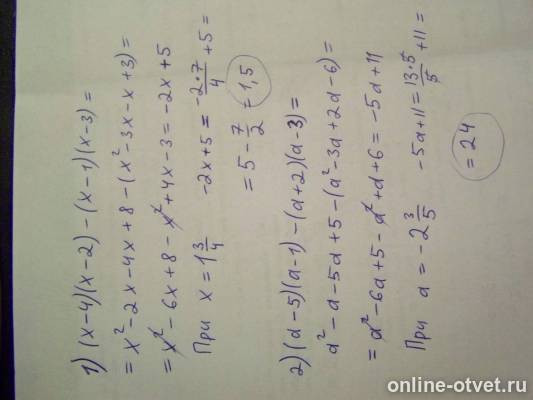 1) (x-4)(x-2) - (x-1)(x-3) =
= x² - 2x - 4x + 8 - (x² - 3x - x + 3) =
= x² - 6x + 8 - x² + 4x - 3 = -2x + 5
При x = 1 3/4    -2x + 5 = -2·7/4 + 5 =
= 5 - 7/2 = 1,5
2) (a-5)(a-1) - (a+2)(a-3) =
a² - a - 5a + 5 - (a² - 3a + 2a - 6) =
= a² - 6a + 5 - a² + a + 6 = -5a + 11
При a = -2 3/5    -5a + 11 = 13·5/5 + 11 =
= 24
online-otvet.ru